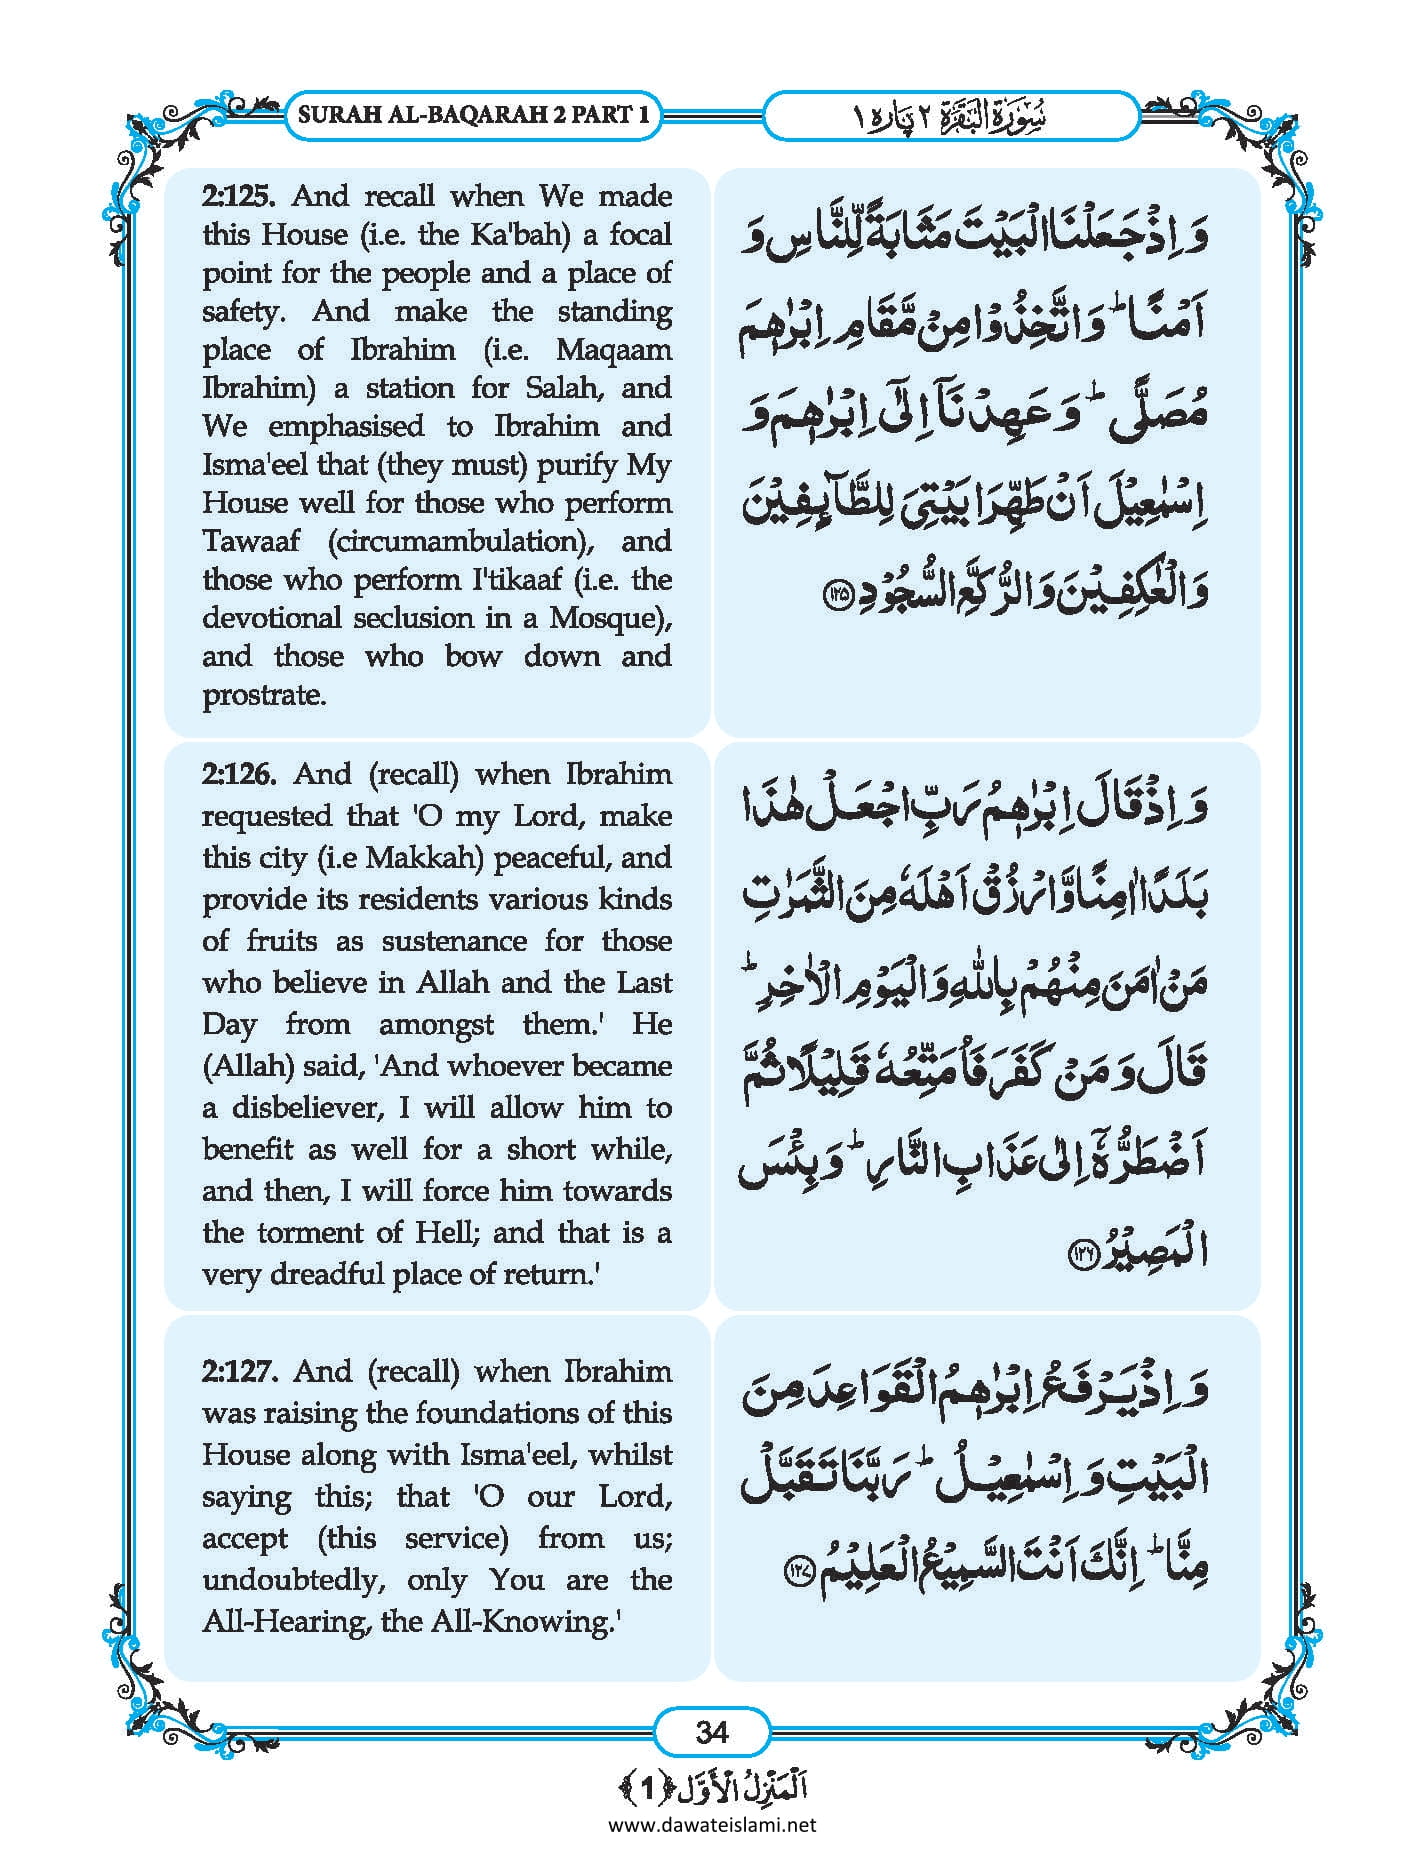 SURAH AL-BAQARAH 2 PART 1
سُوۡرَۃُ الۡبَقَرَۃِ ۲ پارہ ۱
2:125. And recall when We made
this House (i.e. the Ka'bah) a focal
point for the people and a place of
safety. And make the standing
place of Ibrahim (i.e. Maqaam
Ibrahim) a station for Salah, and
We emphasised to Ibrahim and
Isma'eel that (they must) purify My
House well for those who perform
Tawaaf (circumambulation), and
those who perform I'tikaaf (i.e. the
devotional seclusion in a Mosque),
and those who bow down and
prostrate.
وَ اِذْ جَعَلْنَا الْبَیْتَ مَثَابَةً لِّلنَّاسِ وَ
اَمْنًاؕ وَ اتَّخِذُوْا مِنْ مَّقَامِ اِبْرٰهٖمَ
مُصَلًّىؕ وَ عَهِدْنَاۤ اِلٰۤى اِبْرٰهٖمَ وَ
اِسْمٰعِیْلَ اَنْ طَهِّرَا بَیْتِیَ لِلطَّآىٕفِیْنَ
وَ الْعٰكِفِیْنَ وَ الرُّكَّعِ السُّجُوْدِ ﴿۱۲۵﴾
2:126. And (recall) when Ibrahim
requested that 'O my Lord, make
this city (i.e Makkah) peaceful, and
provide its residents various kinds
of fruits as sustenance for those
who believe in Allah and the Last
Day from amongst them.' He
(Allah) said, 'And whoever became
a disbeliever, I will allow him to
benefit as well for a short while,
and then, I will force him towards
the torment of Hell; and that is a
very dreadful place of return.'
وَ اِذْ قَالَ اِبْرٰهٖمُ رَبِّ اجْعَلْ هٰذَا
بَلَدًا اٰمِنًا وَّ ارْزُقْ اَهْلَهٗ مِنَ الثَّمَرٰتِ
مَنْ اٰمَنَ مِنْهُمْ بِاللّٰهِ وَ الْیَوْمِ الْاٰخِرِؕ
قَالَ وَ مَنْ كَفَرَ فَاُمَتِّعُهٗ قَلِیْلًا ثُمَّ
اَضْطَرُّهٗۤ اِلٰى عَذَابِ النَّارِؕ وَ بِئْسَ
الْمَصِیْرُ ﴿۱۲۶﴾
2:127. And (recall) when Ibrahim
was raising the foundations of this
House along with Isma'eel, whilst
saying this; that 'O our Lord,
accept (this service) from us;
undoubtedly, only You are the
All-Hearing, the All-Knowing.'
وَ اِذْ یَرْفَعُ اِبْرٰهٖمُ الْقَوَاعِدَ مِنَ
الْبَیْتِ وَ اِسْمٰعِیْلُؕ رَبَّنَا تَقَبَّلْ
مِنَّاؕ اِنَّكَ اَنْتَ السَّمِیْعُ الْعَلِیْمُ ﴿۱۲۷﴾
34
اَلْمَنْزِلُ الْاَوَّل ﴿1﴾
www.dawateislami.net